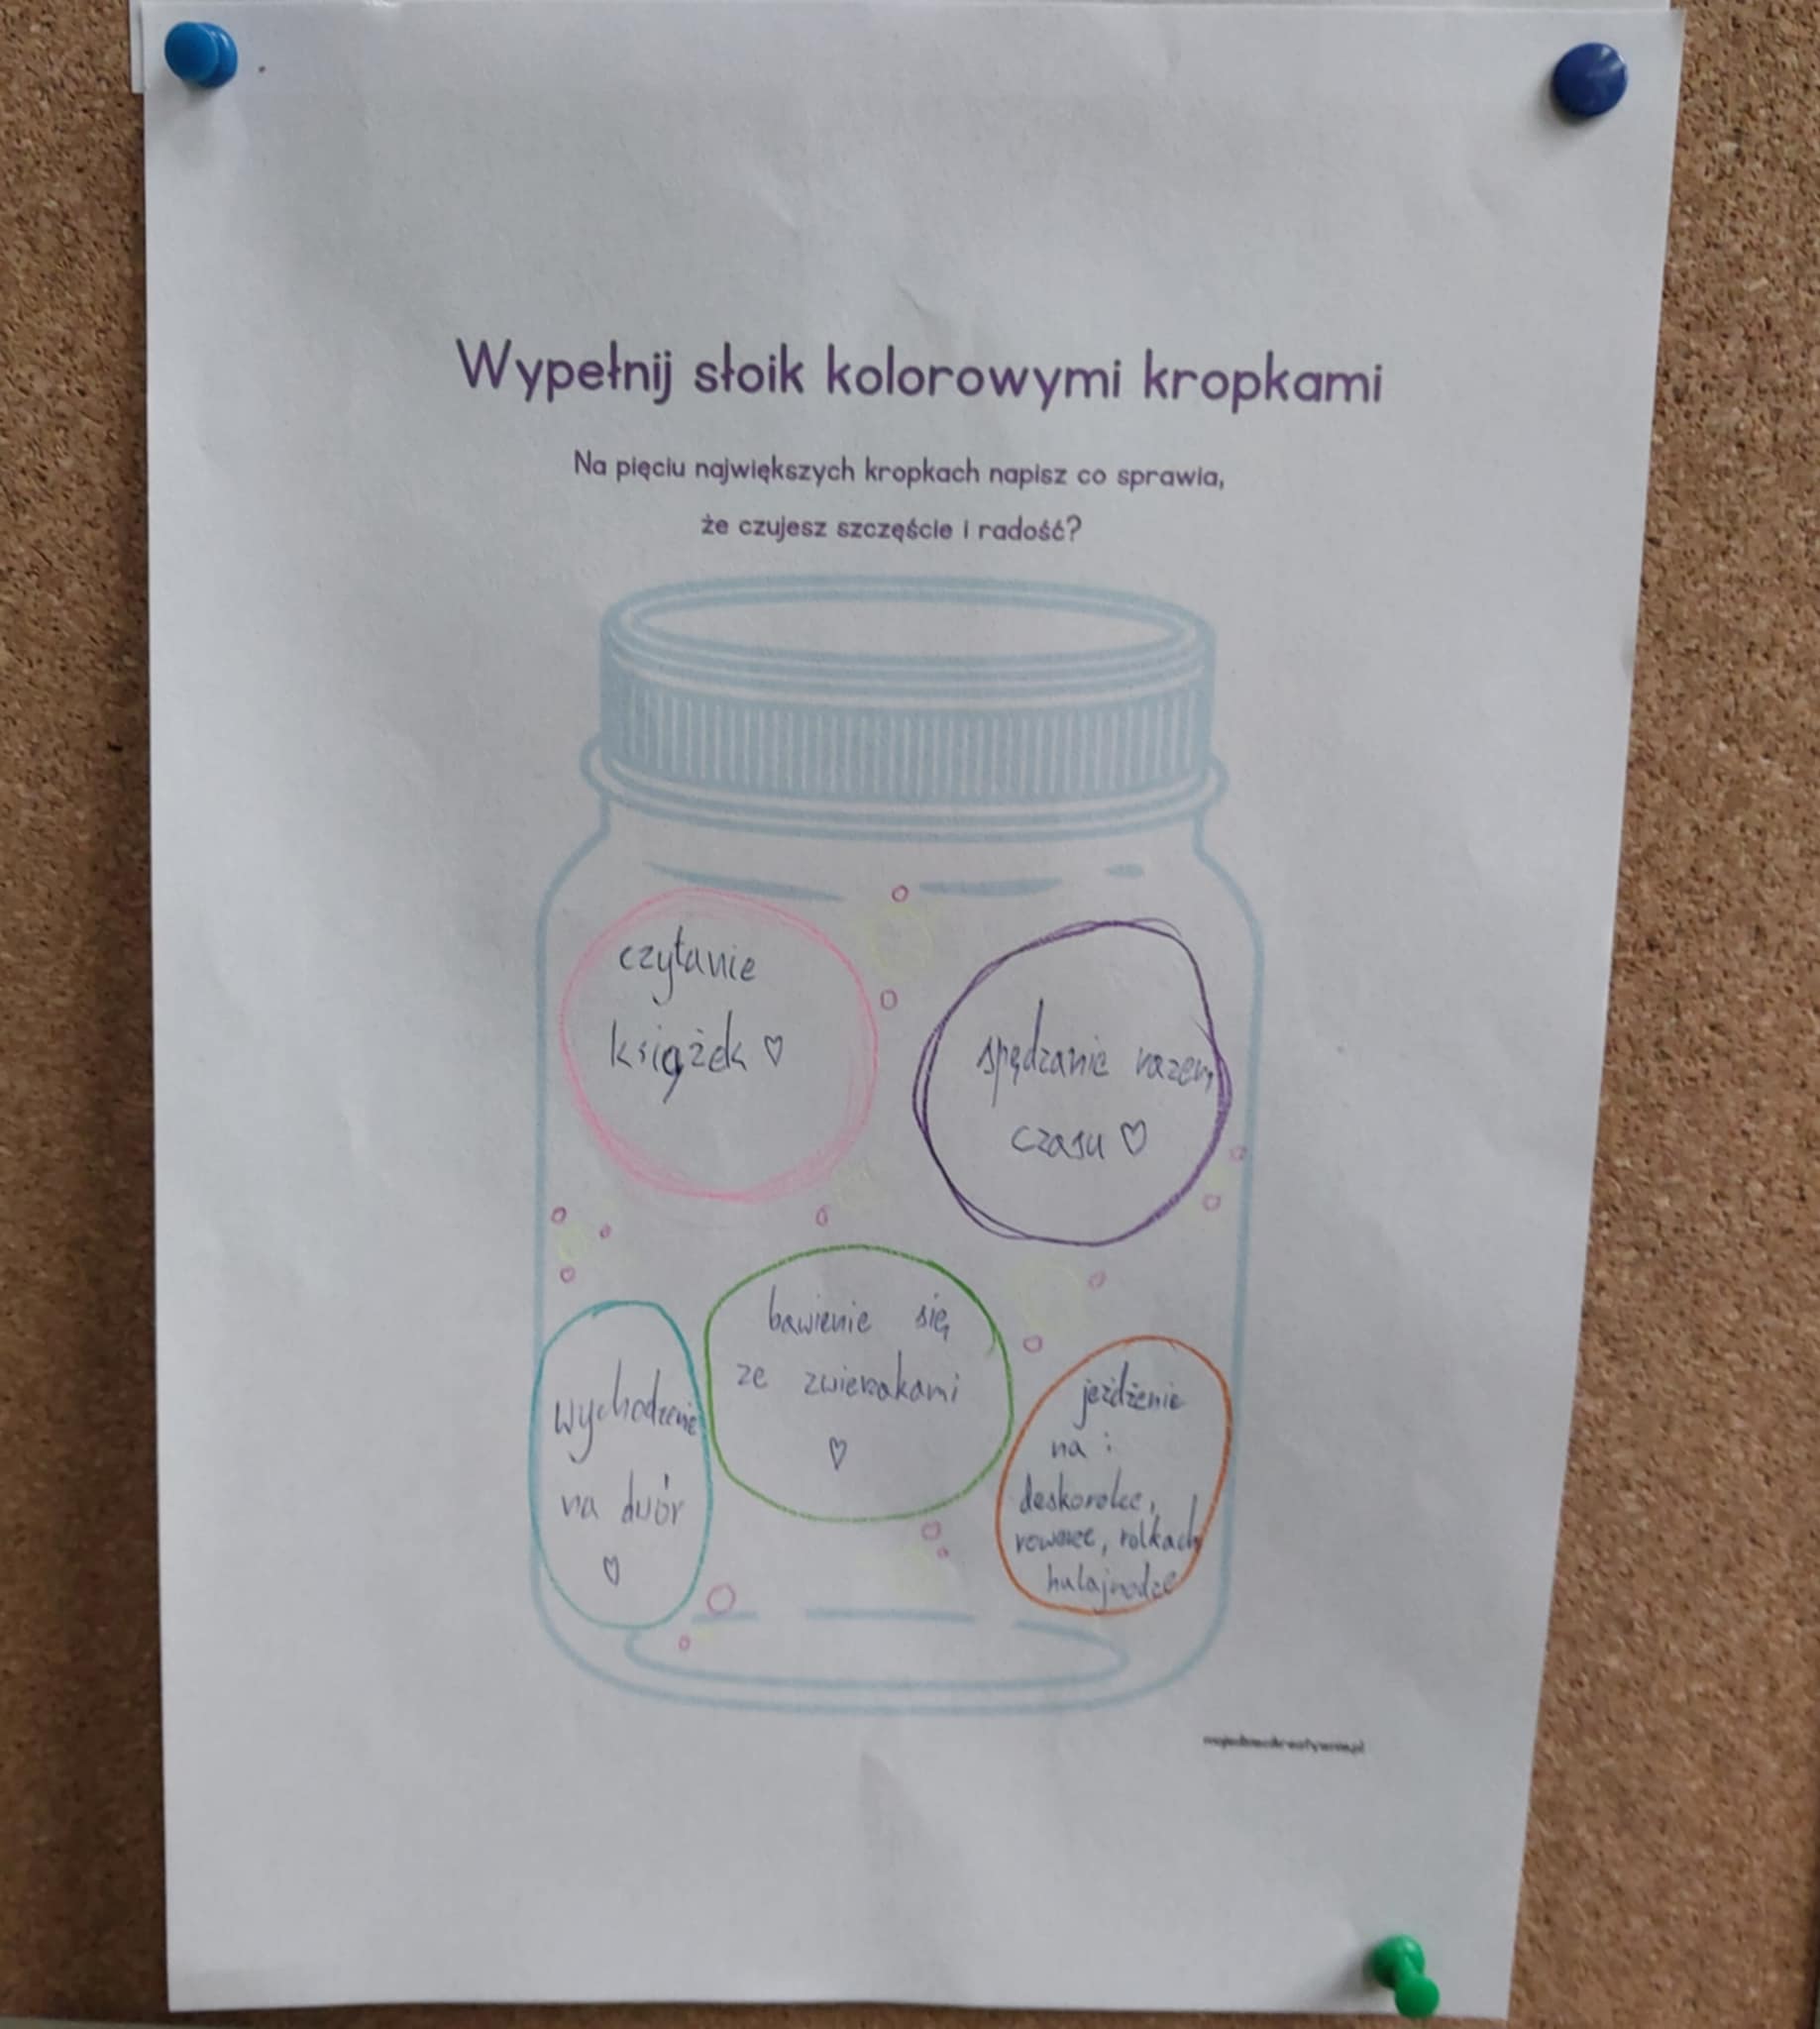 Wypełnij słoik kolorowymi kropkami
Na pięciu największych kropkach napisz co sprawia,
że czujesz szczęście i radość?
czytanie
książek ♡
spędzanie razem
czasu ♡
bawienie się
ze zwierzakami
♡
wychodzenie
na dwór
♡
jeżdżenie
na :
deskorolce,
rowerze, rolkach
hulajnodze